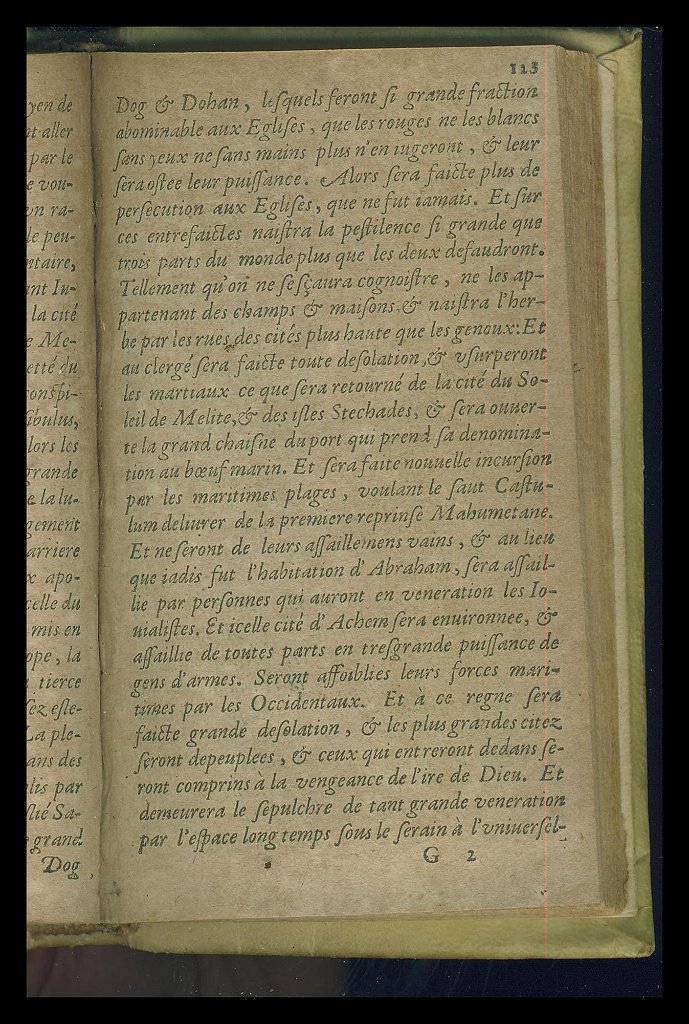 yen de
nt aller
par le
e vou-
vn ra-
le peu-
ntaire,
nt Iu-
la cité
e Me-
etté du
conspi-
sibulus,
lors les
grande
e la lu-
gement
arriere
x apo-
celle du
mis en
ope, la
tierce
sez esle-
La ple-
ans des
lis par
slié Sa-
grand
Dog
123
Dog & Dohan, lesquels feront si grande fraction
abominable aux Eglises, que les rouges ne les blancs
sans yeux ne sans mains plus n'en iugeront, & leur
sera ostee leur puissance. Alors sera faicte plus de
persecution aux Eglises, que ne fut iamais. Et sur
ces entrefaictes naistra la pestilence si grande que
trois parts du monde plus que les deux defaudront.
Tellement qu'on ne se sçaura cognoistre, ne les ap-
partenant des champs & maisons, & naistra l'her-
be par les rues des cités plus haute que les genoux: Et
au clergé sera faicte toute desolation, & vsurperont
les martiaux ce que sera retourné de la cité du So-
leil de Melite, & des isles Stechades, & sera ouuer-
te la grand chaisne du port qui prend sa denomina-
tion au bœuf marin. Et sera faite nouuelle incursion
par les maritimes plages, voulant le saut Castu-
lum deliurer de la premiere reprinse Mahumetane.
Et ne seront de leurs assaillemens vains, & au lieu
que iadis fut l'habitation d'Abraham, sera assail-
lie par personnes qui auront en veneration les Io-
uialistes. Et icelle cité d'Achem sera enuironnee, &
assaillie de toutes parts en tresgrande puissance de
gens d'armes. Seront affoiblies leurs forces mari-
times par les Occidentaux. Et à ce regne sera
faicte grande desolation, & les plus grandes citez
seront depeuplees, & ceux qui entreront dedans se-
ront comprins à la vengeance de l'ire de Dieu. Et
demeurera le sepulchre de tant grande veneration
par l'espace long temps sous le serain à l'vniuersel-
G 2